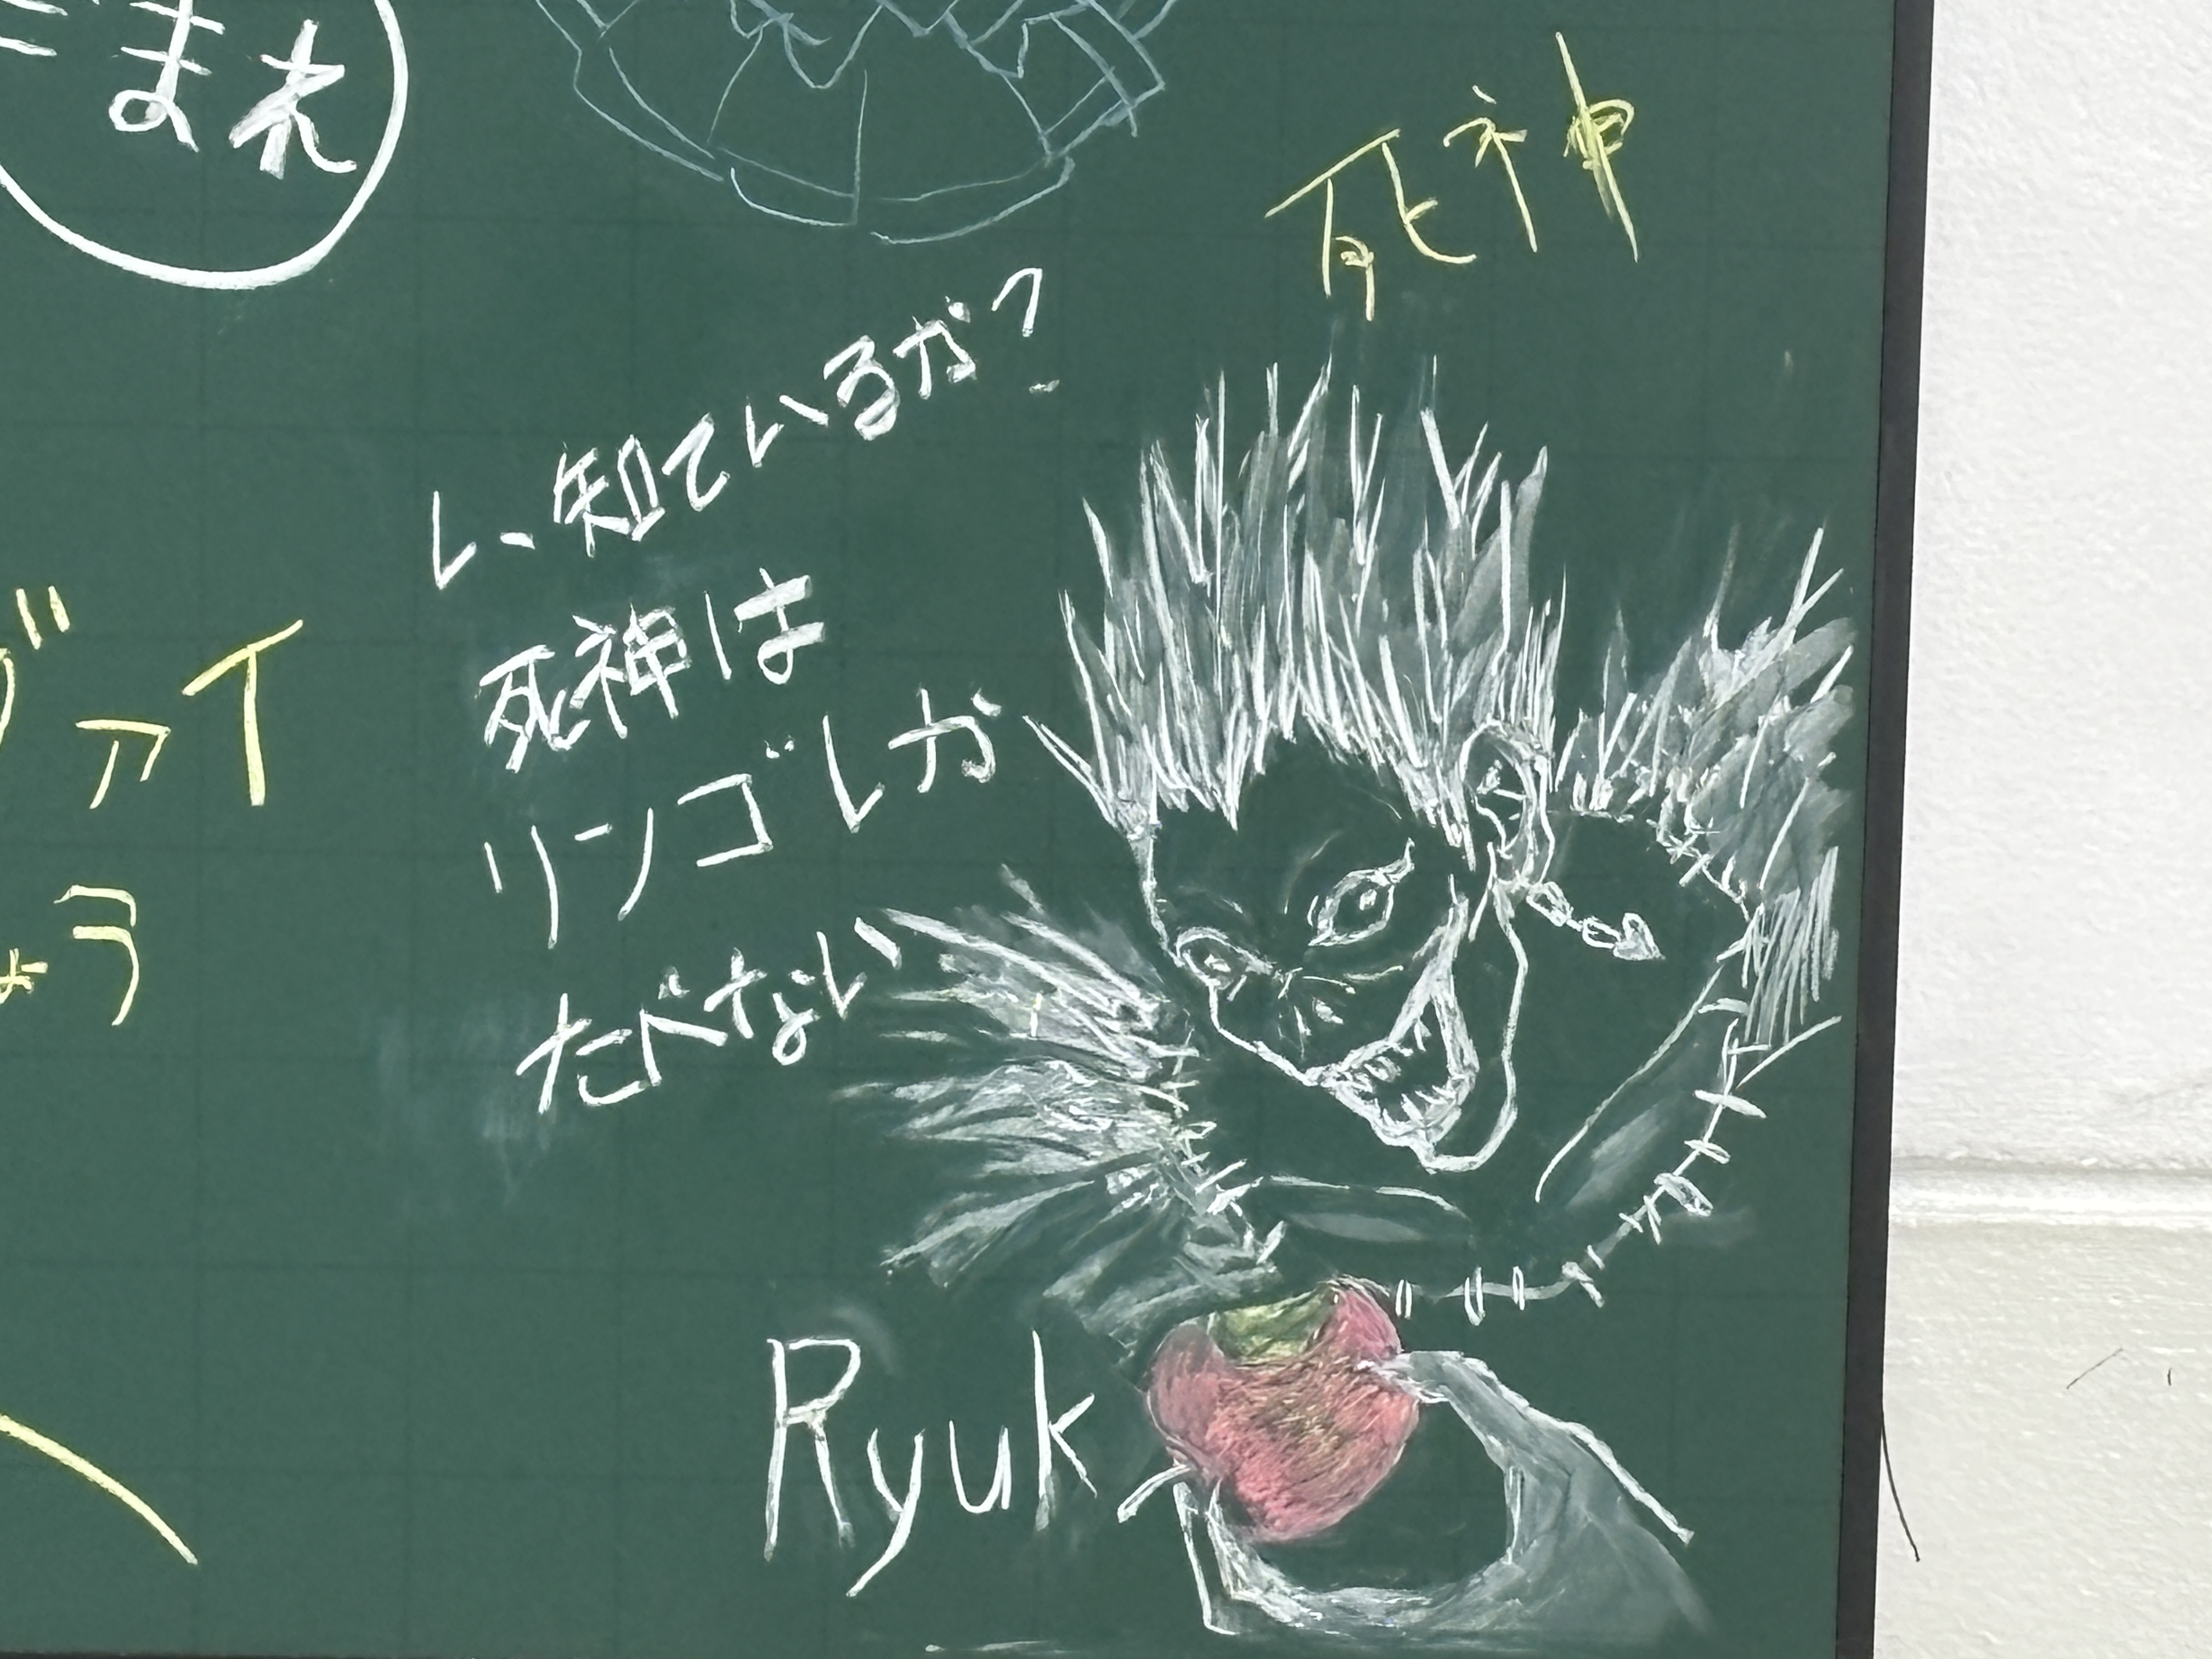 まれ
死神
L、知ているか?
死神は
リンゴしか
たべない
ヴァイ
ょう
Ryuk